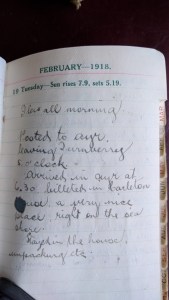 FEBRUARY—1918.
19 Tuesday—Sun rises 7.9, sets 5.19.
all morning
Posted to Ayr.
leaving Turnberry
o'clock
Arrived in Ayr at
6.30 billeted in Carleton
a very nice
place right on the sea
shore.
Stayed in the house
unpacking etc